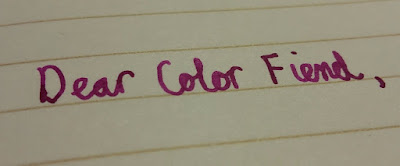 Dear Color Fiend,